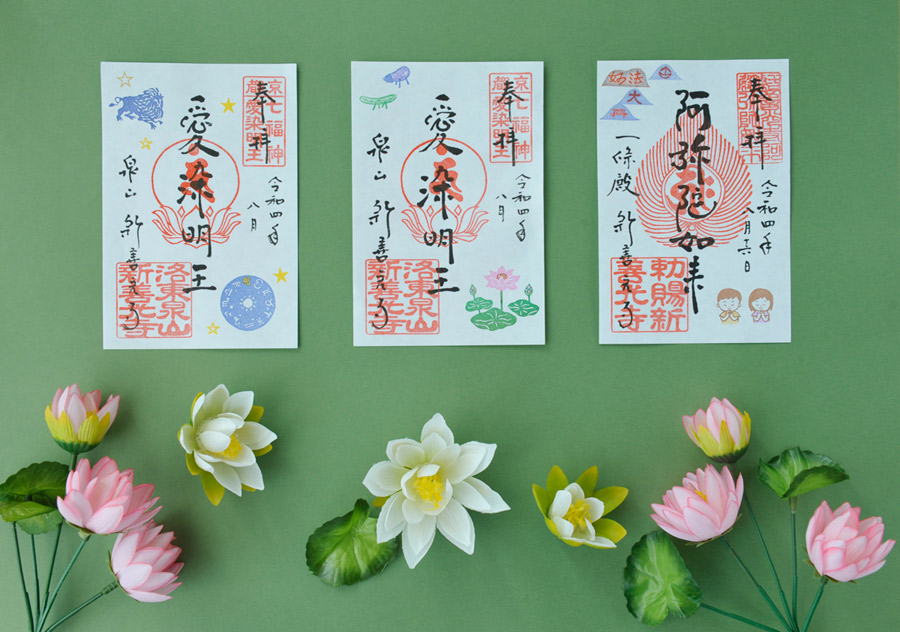 奉拝
京七福神
都愛染明王
愛染明王
令和四年
八月
泉山 新善光寺
洛東泉山
新善光寺
奉拝
京七福神
都愛染明王
愛染明王
令和四年
八月
泉山 新善光寺
洛東泉山
新善光寺
奉拝
妙法
大
阿弥陀如来
令和四年
八月十六日
一條殿 新善光寺
勅賜新
善光寺